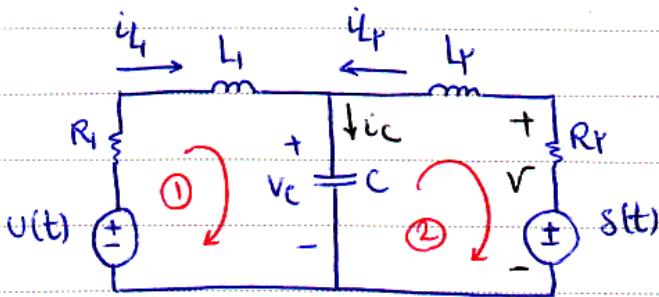 i_L₁ L₁ i_L۲ L۲
R₁ + ↓i_C + R۲
① v_C C ② v
υ(t) + - - + - δ(t)
- -